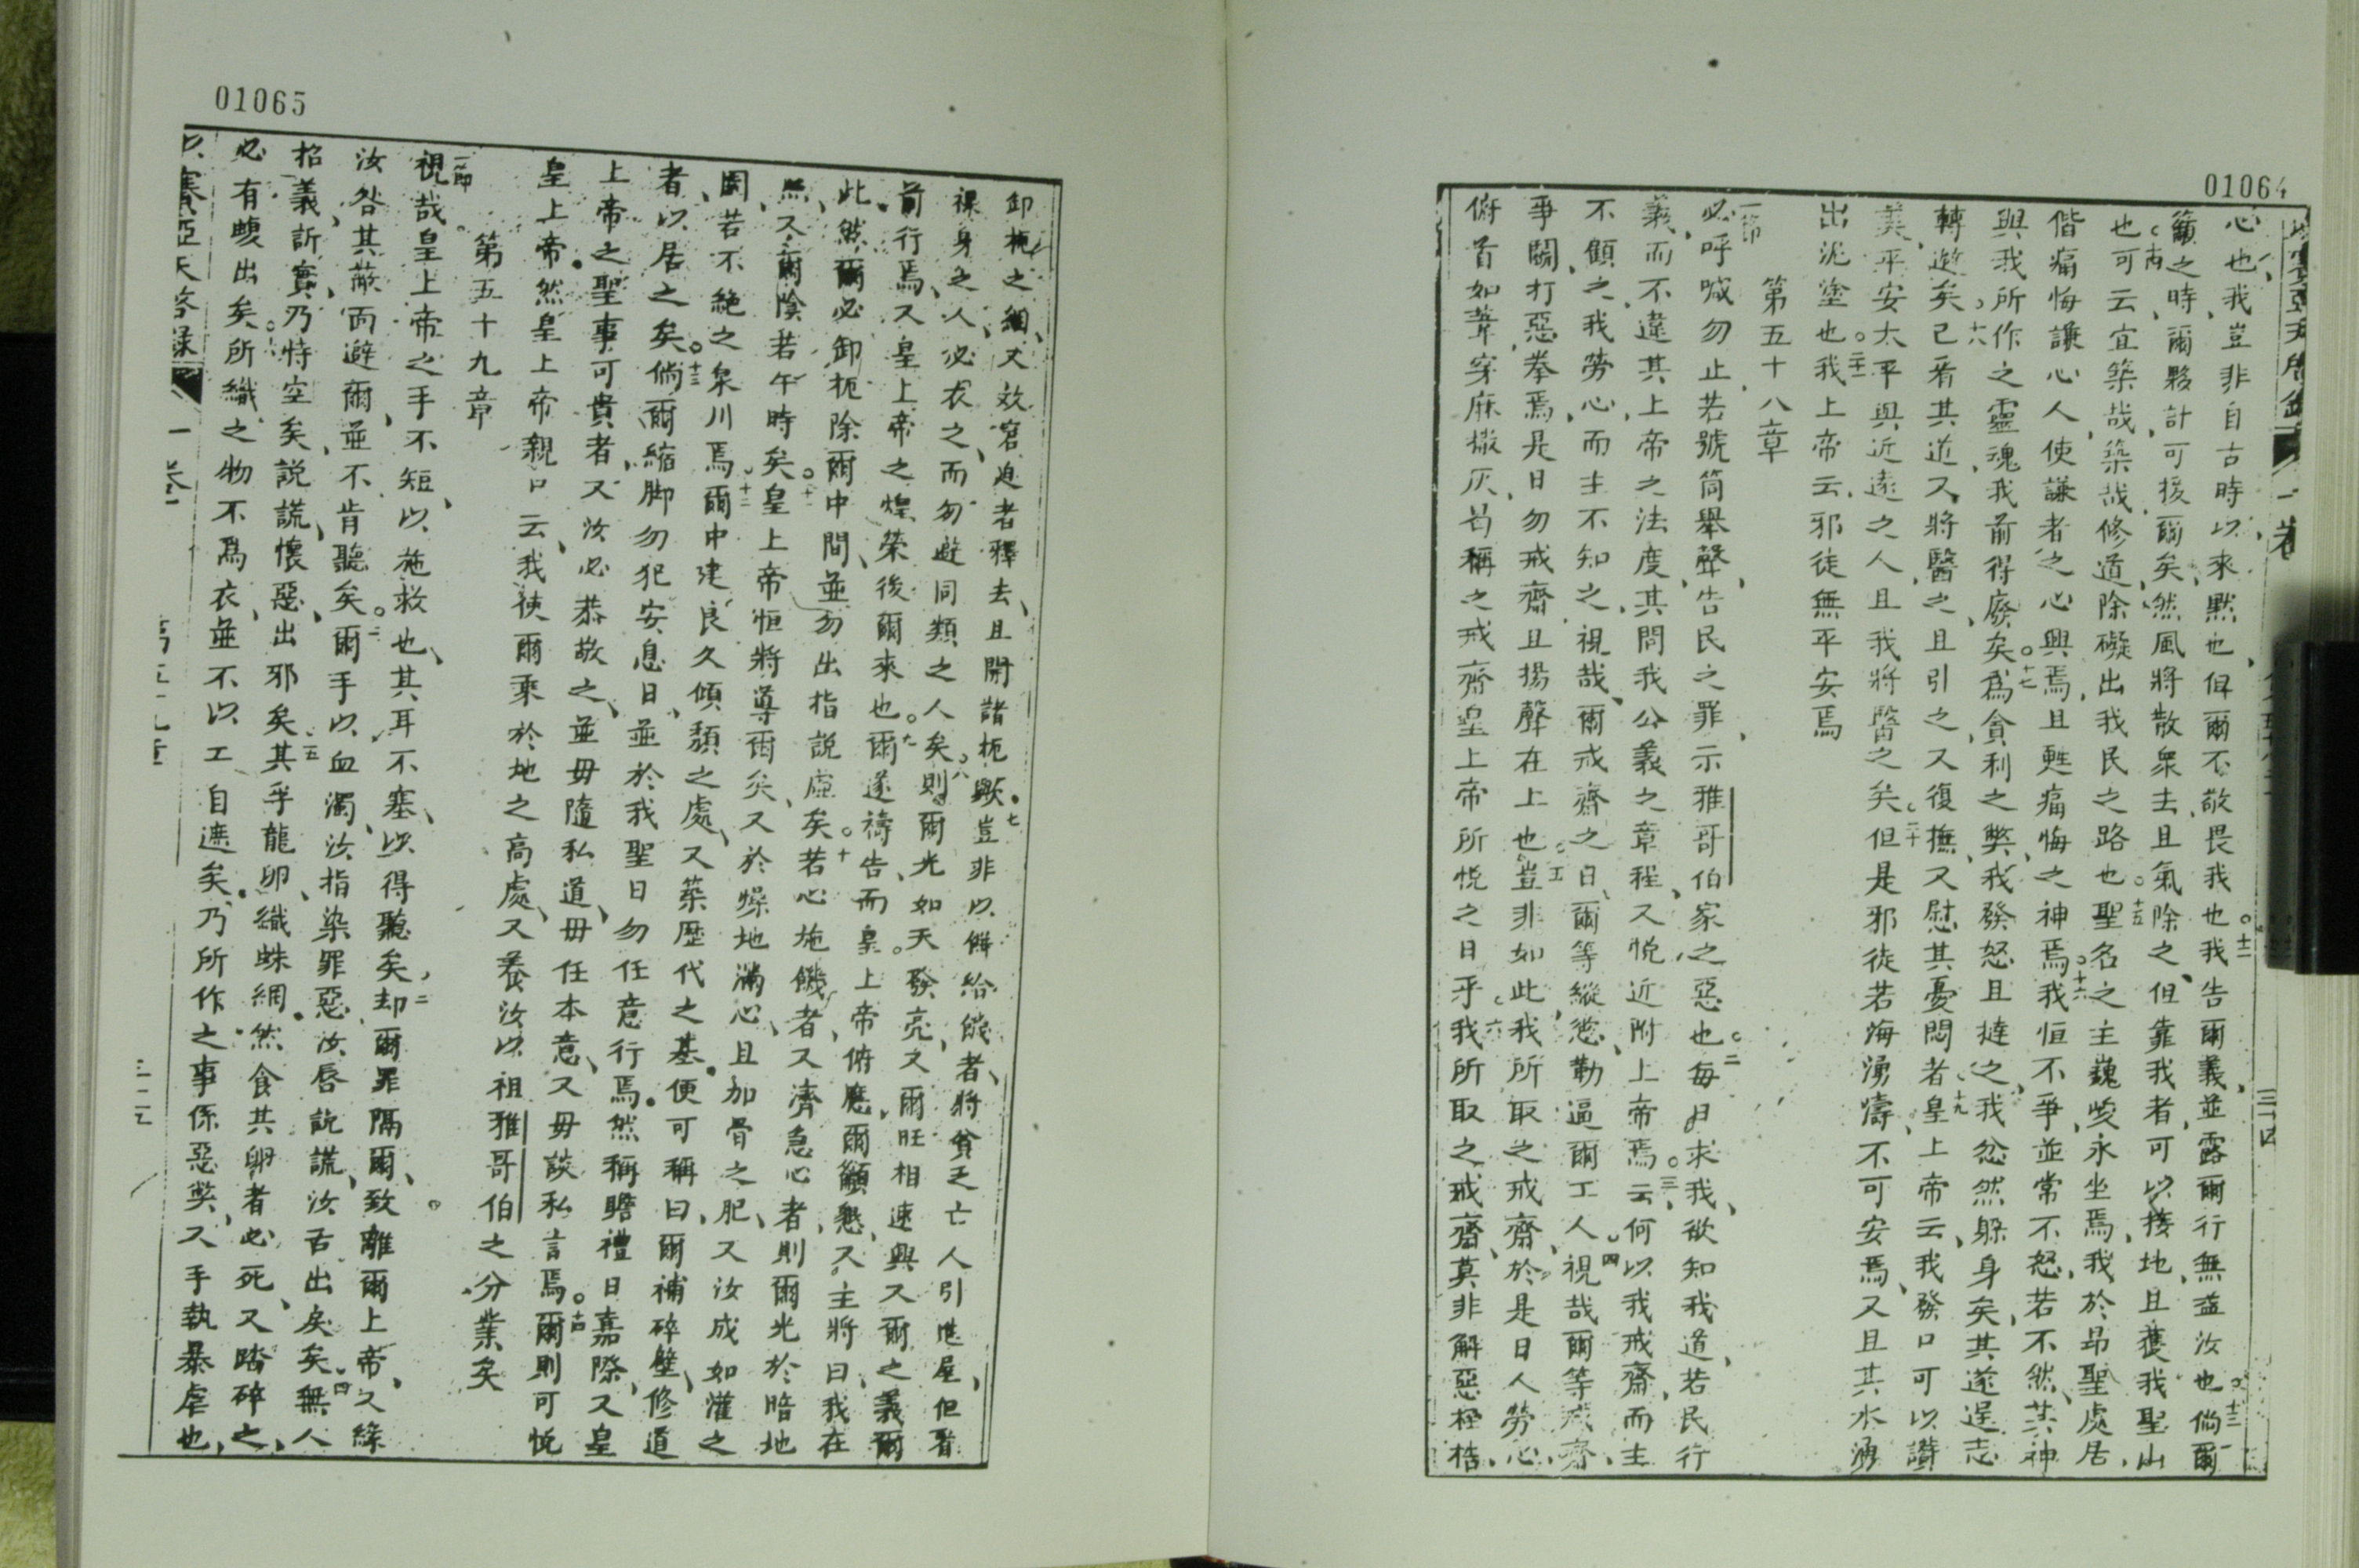 01064
心也我豈非自古時以來默也但爾不敬畏我也。十二我告爾義並露爾行無益汝也。十三倘爾
籲之時爾夥計可援爾矣然風將散衆去且氣除之但靠我者可以接地且獲我聖山
也。十四可云宜築哉築哉修道除礙出我民之路也。十五聖名之主巍峻永坐焉我於昂聖處居
偕痛悔謙心人使謙者之心興焉且甦痛悔之神焉。十六我恒不爭並常不怒若不然其神
與我所作之靈魂我前得廢矣。十七爲貪利之弊我發怒且撻之我忿然躲身矣其遂逞志
轉遊矣。十八已看其道又將醫之且引之又復撫又慰其憂悶者。十九皇上帝云我發口可以讚
美平安太平與近遠之人且我將醫之矣。二十但是邪徒若海湧濤不可安焉又且其水湧
出泥塗也。二十一我上帝云邪徒無平安焉
第五十八章
一節必呼喊勿止若號筒舉聲告民之罪示雅哥伯家之惡也。二每日求我欲知我道若民行
義而不違其上帝之法度其問我公義之章程又悅近附上帝焉。三云何以我戒齋而主
不顧之我勞心而主不知之視哉爾戒齋之日爾等縱慾勒逼爾工人。四視哉爾等戒齋
爭鬭打惡拳焉是日勿戒齋且揚聲在上也。五豈非如此我所取之戒齋於是日人勞心
俯首如葦穿麻撒灰苟稱之戒齋皇上帝所悅之日乎。六我所取之戒齋莫非解惡桎梏
01065
卸軛之綑又放窘迫者釋去且開諸軛歟。七豈非以餅給餓者將貧乏亡人引進屋但看
裸身之人必衣之而勿避同類之人矣。八則爾光如天發亮又爾旺相速興又爾之義爾
前行焉又皇上帝之煌榮後爾來也。九爾遂禱告而皇上帝俯應爾籲懇又主將曰我在
此然爾必卸軛除爾中間並勿出指說虛矣。十若心施饑者又濟急心者則爾光於暗地
照又爾陰若午時矣。十一皇上帝恒將導爾矣又於燥地滿心且加骨之肥又汝成如灌之
園若不絕之泉川焉。十二爾中建良久傾頽之處又築歷代之基便可稱曰爾補碎壁修道
者以居之矣。十三倘爾縮脚勿犯安息日並於我聖日勿任意行焉然稱瞻禮日嘉際又皇
上帝之聖事可貴者又汝必恭敬之並毋隨私道毋任本意又毋談私言焉。十四爾則可悅
皇上帝然皇上帝親口云我使爾乘於地之高處又養汝以祖雅哥伯之分業矣
第五十九章
一節視哉皇上帝之手不短以施救也其耳不塞以得聽矣。二却爾罪隔爾致離爾上帝又緣
汝咎其蔽面避爾並不肯聽矣。三爾手以血濁汝指染罪惡汝唇說謊汝舌出戾矣。四無人
招義訴實乃恃空矣說謊懷惡出邪矣。五其孚龍卵織蛛網然食其卵者必死又踏碎之
必有蝮出矣。六所織之物不爲衣並不以工自遮矣乃所作之事係惡獘又手執暴虐也
以賽亞天啓錄 一卷 第五十九章